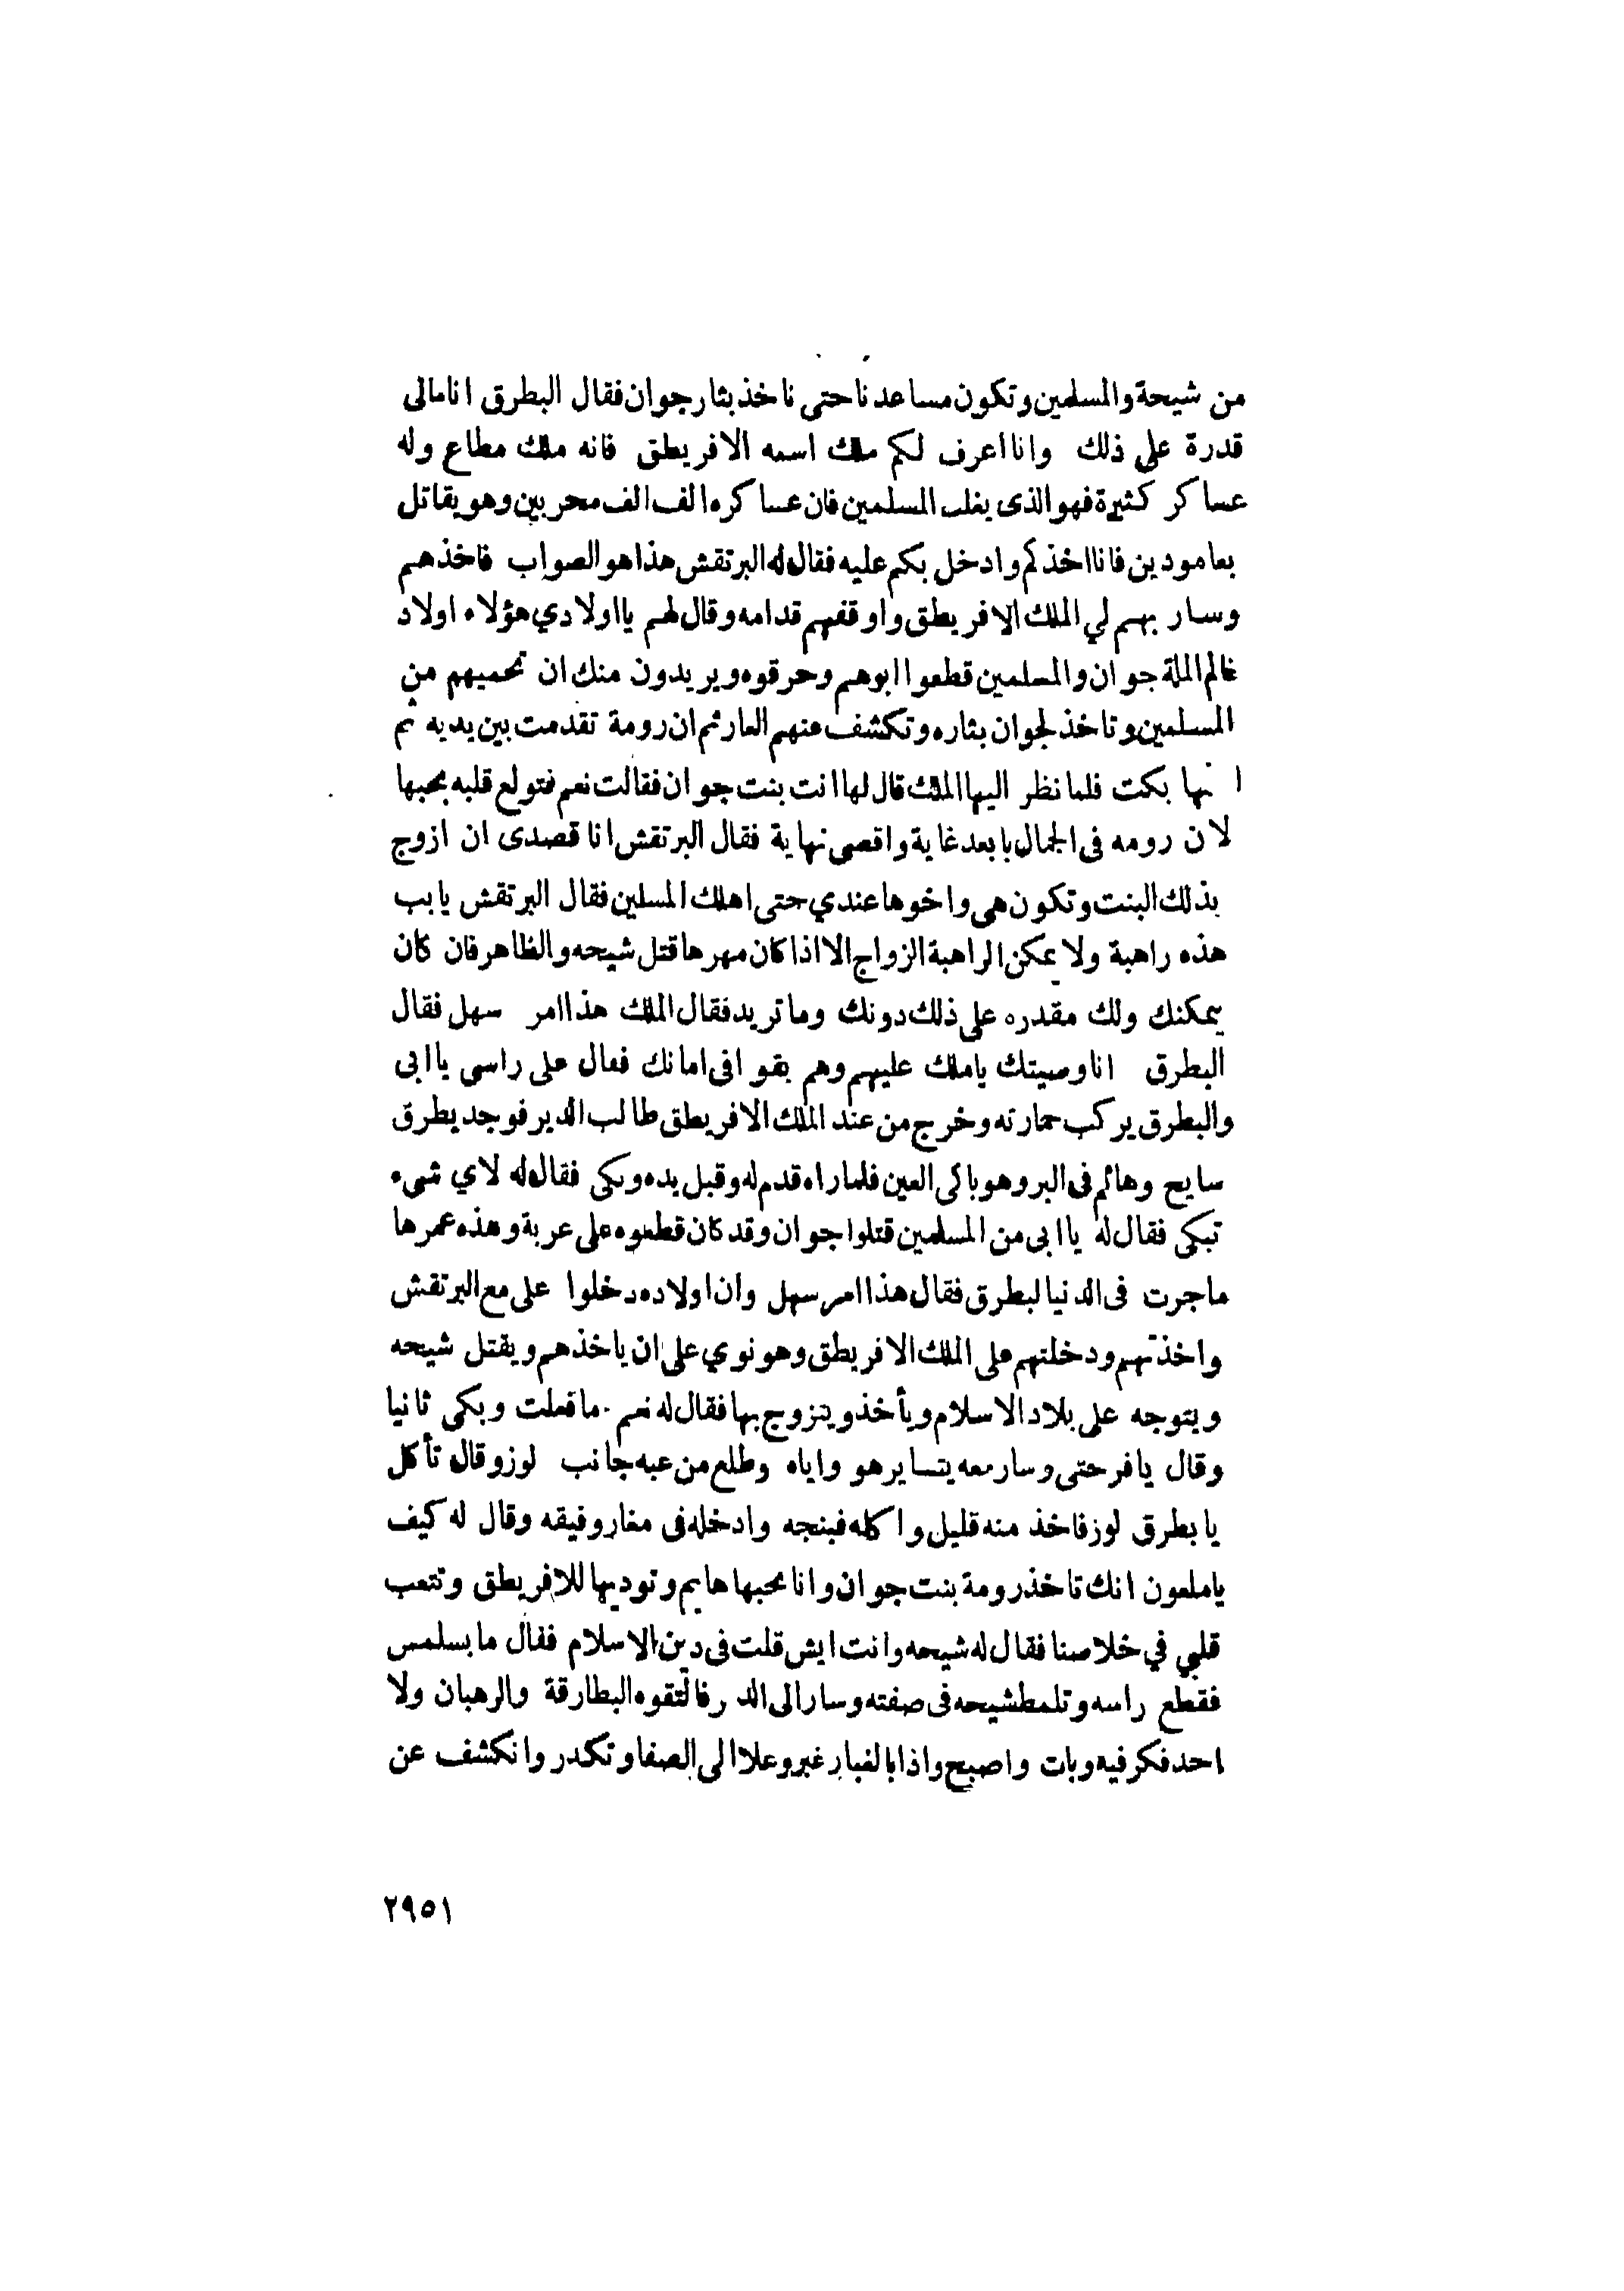 من شيحة والمسلمين وتكون مساعدنا حتى ناخذ بثار جوان فقال البطرق انا مالى
قدرة على ذلك وانا اعرف لكم ملك اسمه الافريطق فانه ملك مطاع وله
عساكر كثيرة فهو الذى يغلب المسلمين فان عساكره الف الف محربين وهو يقاتل
بعامودين فانا اخذكم وادخل بكم عليه فقال له البرتقش هذا هو الصواب فاخذهم
وسار بهم لي الملك الافريطق واوقفهم قدامه وقال لهم يا اولادي هؤلاء اولاد
عالم الملة جوان والمسلمين قطعوا ابوهم وحرقوه ويريدون منك ان تحميهم من
المسلمين وتاخذ لجوان بثاره وتكشف عنهم العار ثم ان رومة تقدمت بين يديه ثم
انها بكت فلما نظر اليها الملك قال لها انت بنت جوان فقالت نعم فتولع قلبه بحبها
لان رومه فى الجمال بابعد غاية واقصى نهاية فقال البرتقش انا قصدى ان ازوج
بذلك البنت وتكون هى واخوها عندي حتى اهلك المسلين فقال البرتقش يابب
هذه راهبة ولا يمكن الراهبة الزواج الا اذا كان مهرها قتل شيحه والظاهر فان كان
يمكنك ولك مقدره على ذلك دونك وما تريد فقال الملك هذا امر سهل فقال
البطرق انا وصيتك ياملك عليهم وهم بقوا فى امانك فقال على راسى يا ابى
والبطرق يركب حمارته وخرج من عند الملك الافريطق طالب الدير فوجد يطرق
سايح وهائم فى البر وهو باكى العين فلما راه قدم له وقبل يده وبكى فقال له لاي شىء
تبكى فقال له يا ابى من المسلمين قتلوا جوان وقد كان قطعوه على عربة وهذه عمرها
ماجرت فى الدنيا لبطرق فقال هذا امر سهل وان اولاده دخلوا على مع البرتقش
واخذتهم ودخلتهم على الملك الافريطق وهو نوي على ان ياخذهم ويقتل شيحه
ويتوجه على بلاد الاسلام ويأخذ ويتزوج بها فقال له نعم ما فعلت وبكى ثانيا
وقال يا فرحتى وسار معه يتساير هو واياه وطلع من عبه جانب لوز وقال تأكل
يا بطرق لوز فاخذ منه قليل واكله فبنجه وادخله فى مغار وفيقه وقال له كيف
ياملعون انك تاخذ رومة بنت جوان وانا بحبها هايم وتوديها للافريطق وتتعب
قلبي في خلاصنا فقال له شيحه وانت ايش قلت فى دين الاسلام فقال ما بسلمس
فقطع راسه وتلمط شيحه فى صفته وسار الى الد ر فالتقوه البطارقة والرهبان ولا
احد فكر فيه وبات واصبح واذا بالغبار غبر وعلا الى الصفا وتكدر وانكشف عن
٢٩٥١